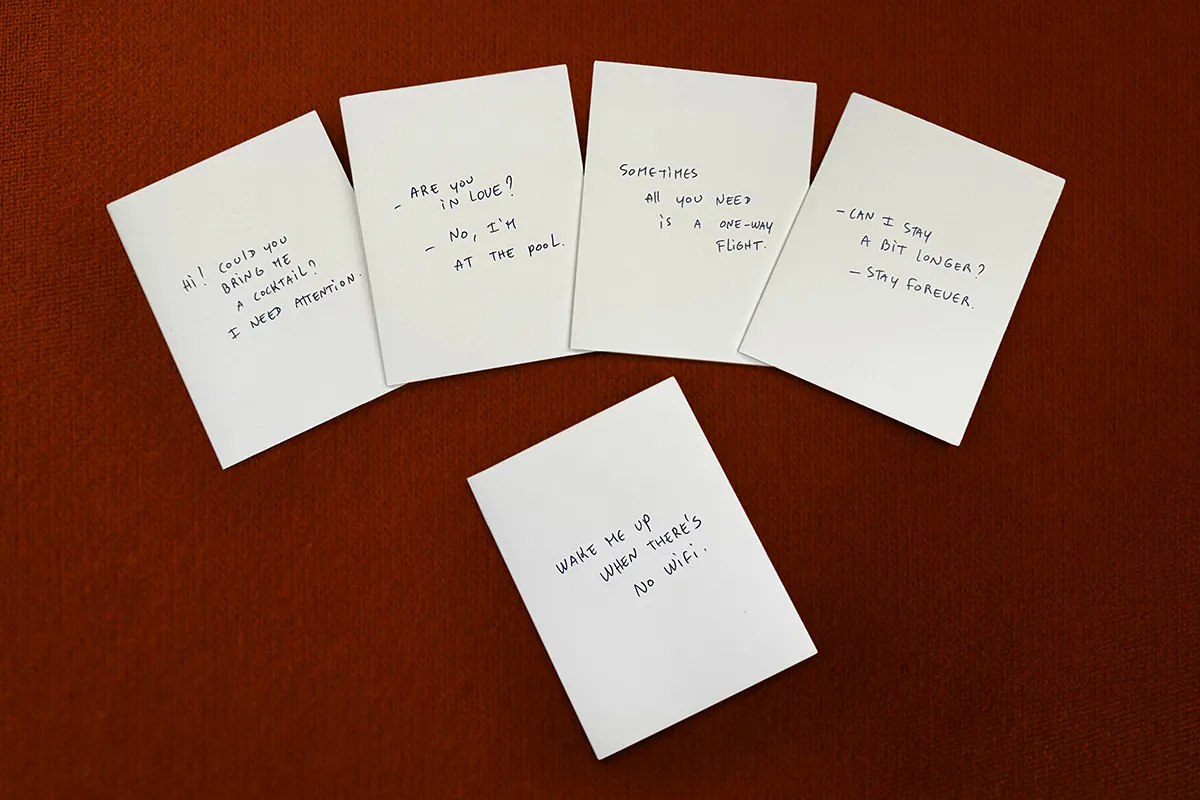 Hi! COULD YOU
BRING ME
A COCKTAIL?
I NEED ATTENTION.
- ARE YOU
IN LOVE?
- NO, I'M
AT THE POOL.
SOMETIMES
All YOU NEED
iS A ONE-WAY
FLiGHT.
- CAN I STAY
A BIT LONGER?
- STAY FOREVER.
WAKE ME UP
WHEN THERE'S
NO WiFi.